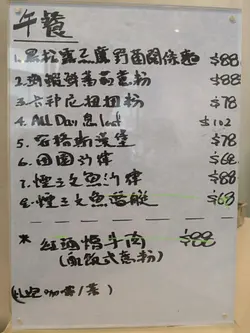 午餐
1. 黑松露三蔥野菌闊條麵 $88
2. 胡椒鮮蕃茄意粉 $88
3. 卡邦尼扭扭粉 $78
4. All Day $102
5. 漢堡 $78
6. 田園沙律 $68
7. 煙三文魚沙律 $88
8. 煙三文魚 $68
* 紅酒燴牛肉 $88
(配飯或意粉)
(咖啡/茶)